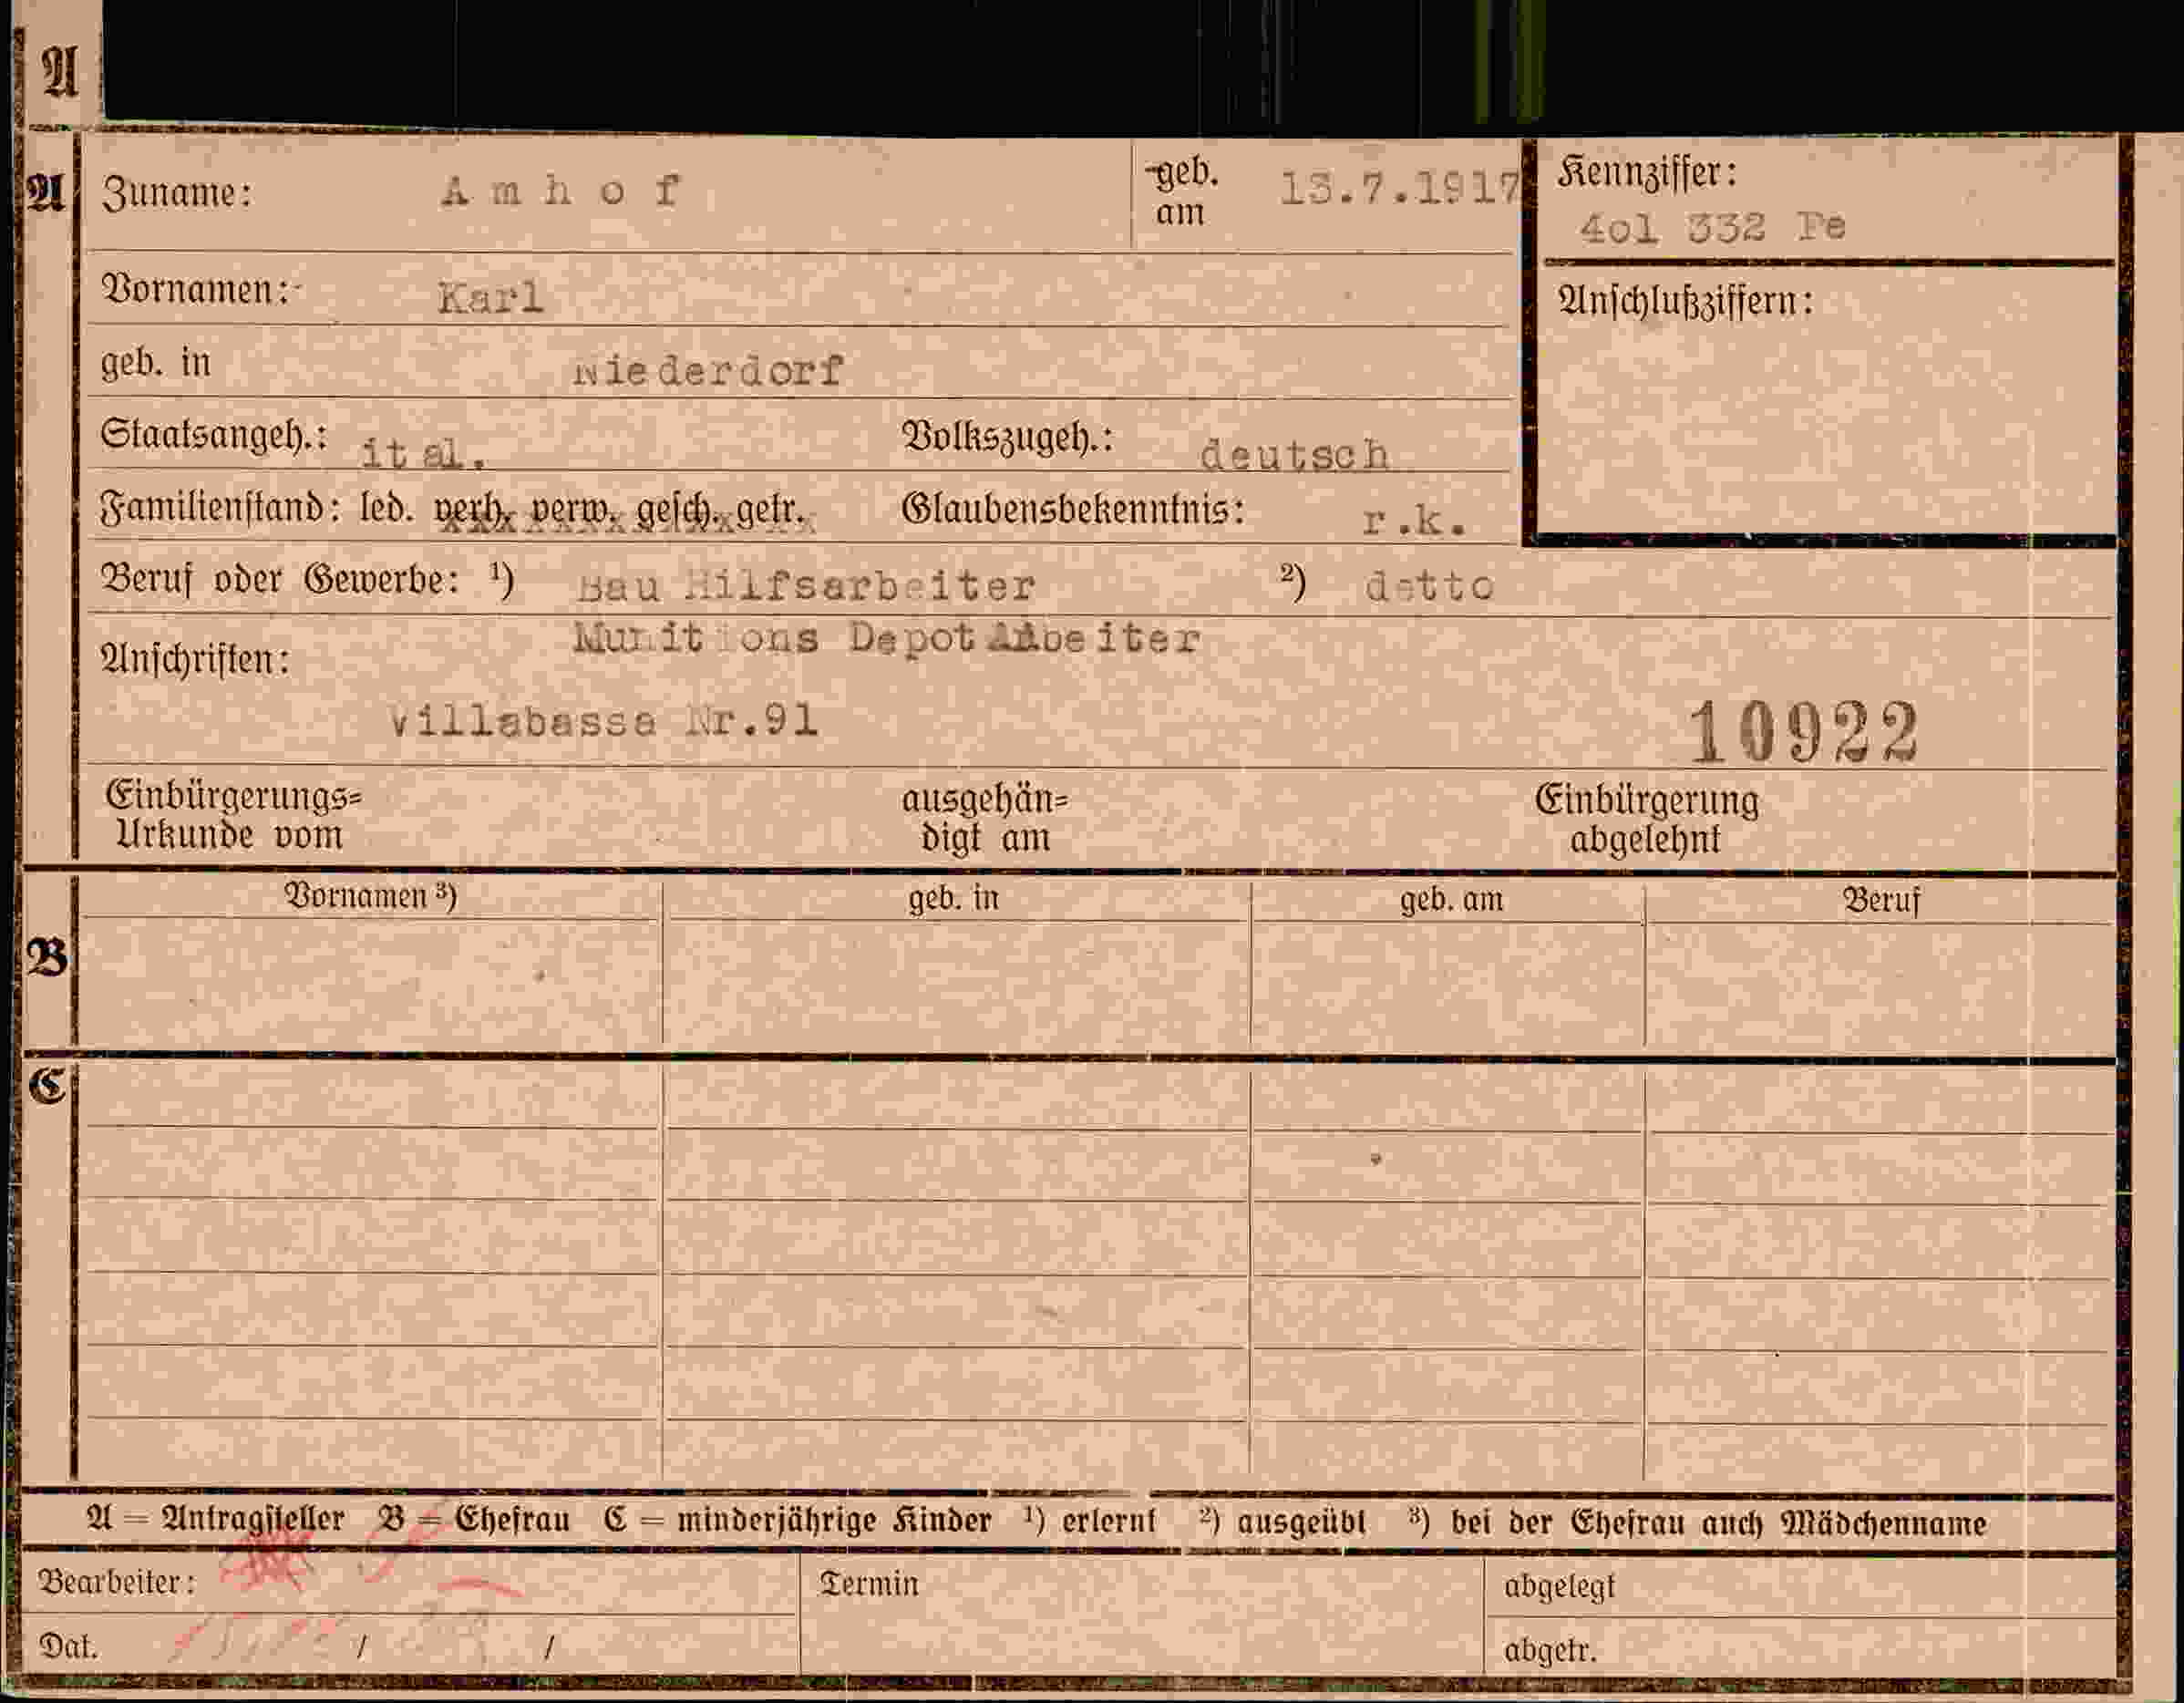 A
A Zuname: Amhof geb. am 13.7.1917 Kennziffer:
4o1 332 Pe
Vornamen: Karl Anschlußziffern:
geb. in Niederdorf
Staatsangeh.: ital. Volkszugeh.: deutsch
Familienstand: led. verh. verw. gesch. getr. Glaubensbekenntnis: r.k.
Beruf oder Gewerbe: ¹) Bau Hilfsarbeiter ²) detto
Munitions Depot Arbeiter
Anschriften:
Villabassa Nr.91 10922
Einbürgerungs= ausgehän= Einbürgerung
Urkunde vom digt am abgelehnt
Vornamen ³) geb. in geb. am Beruf
B
C
A = Antragsteller B = Ehefrau C = minderjährige Kinder ¹) erlernt ²) ausgeübt ³) bei der Ehefrau auch Mädchenname
Bearbeiter: Termin abgelegt
Dat. / / abgetr.